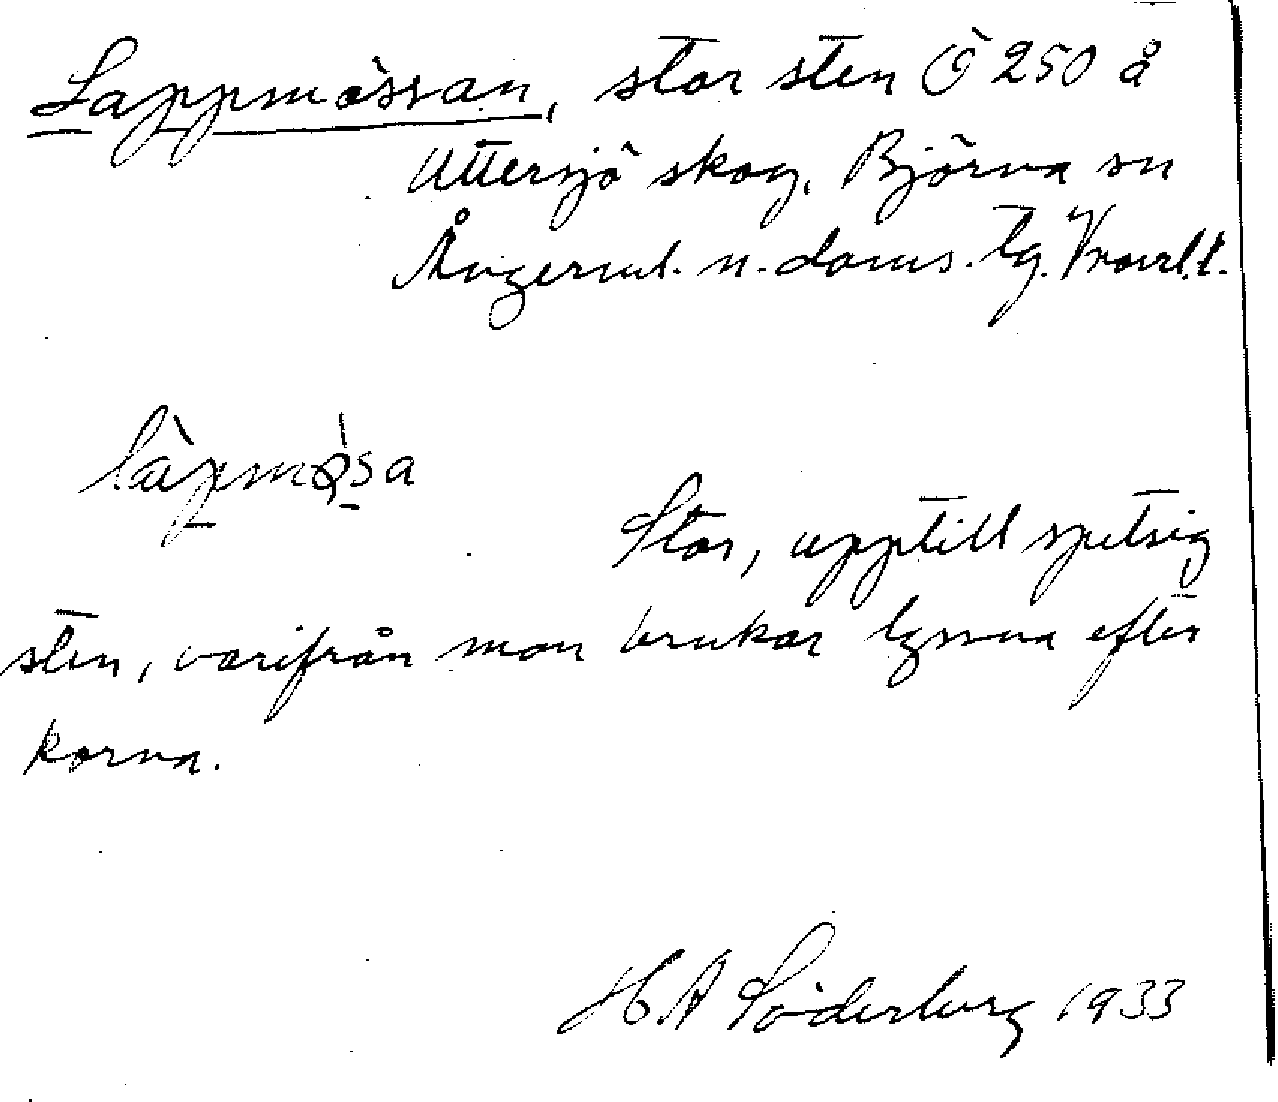 Lappmössan, stor sten Ö 250 å
Uttersjö skog, Björna sn
Ångerml. n. doms. tg.
làpmø̀sa
Stor, upptill spetsig
sten, varifrån man brukar lyssna efter
korna.
H A Söderberg 1933